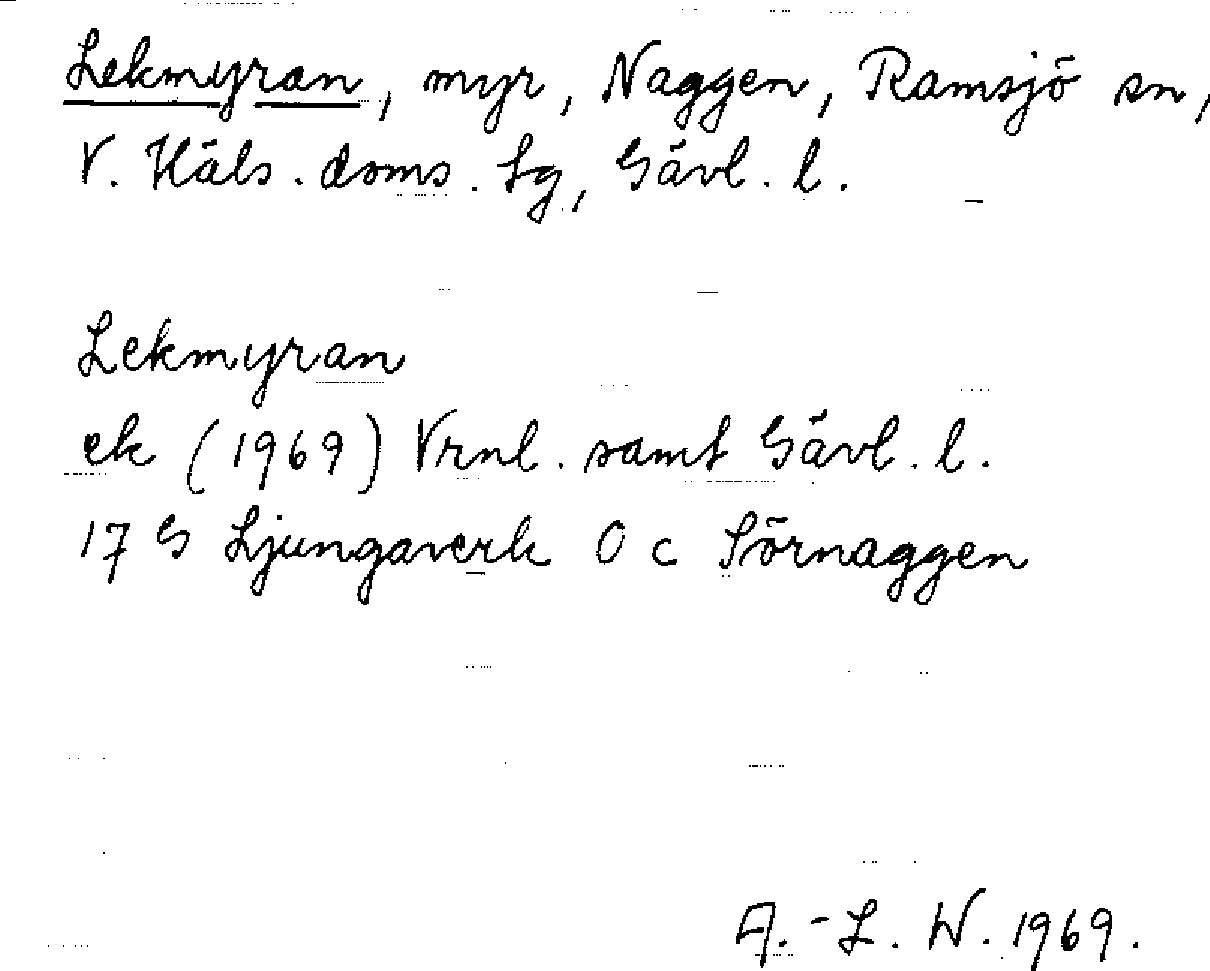 Lekmyran, myr, Naggen, Ramsjö sn,
V. Häls. doms. tg, Gävl. l.
Lekmyran
ek (1969) Vrnl. samt Gävl. l.
17 G Ljungaverk 0 c Sörnaggen
A.-L. W. 1969.